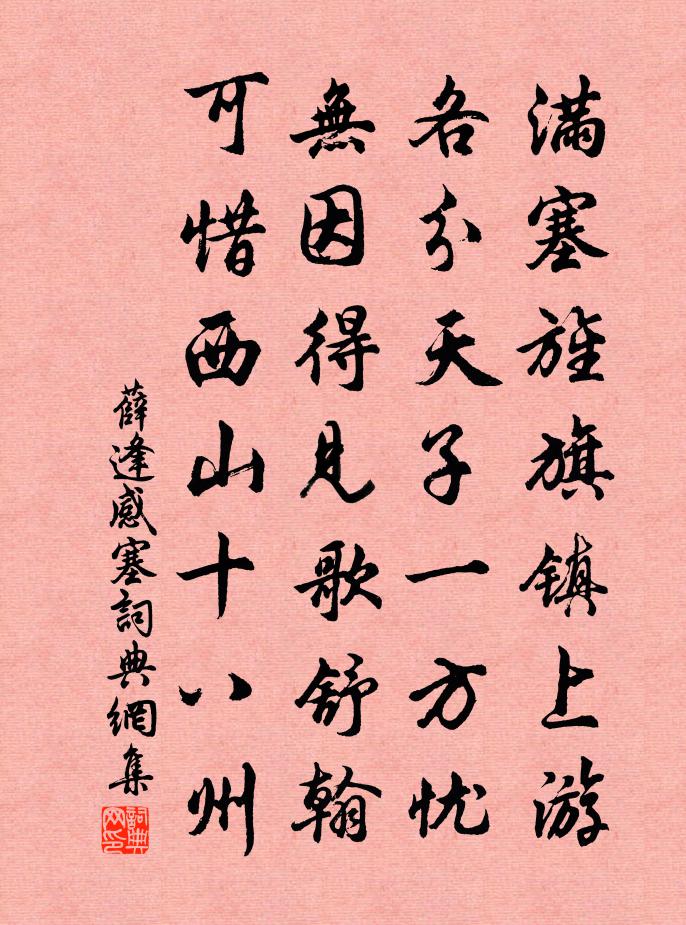 满塞旌旗镇上游
各分天子一方忧
無因得見歌舒翰
可惜西山十八州
薛逢感塞詞典網集
詞典网印